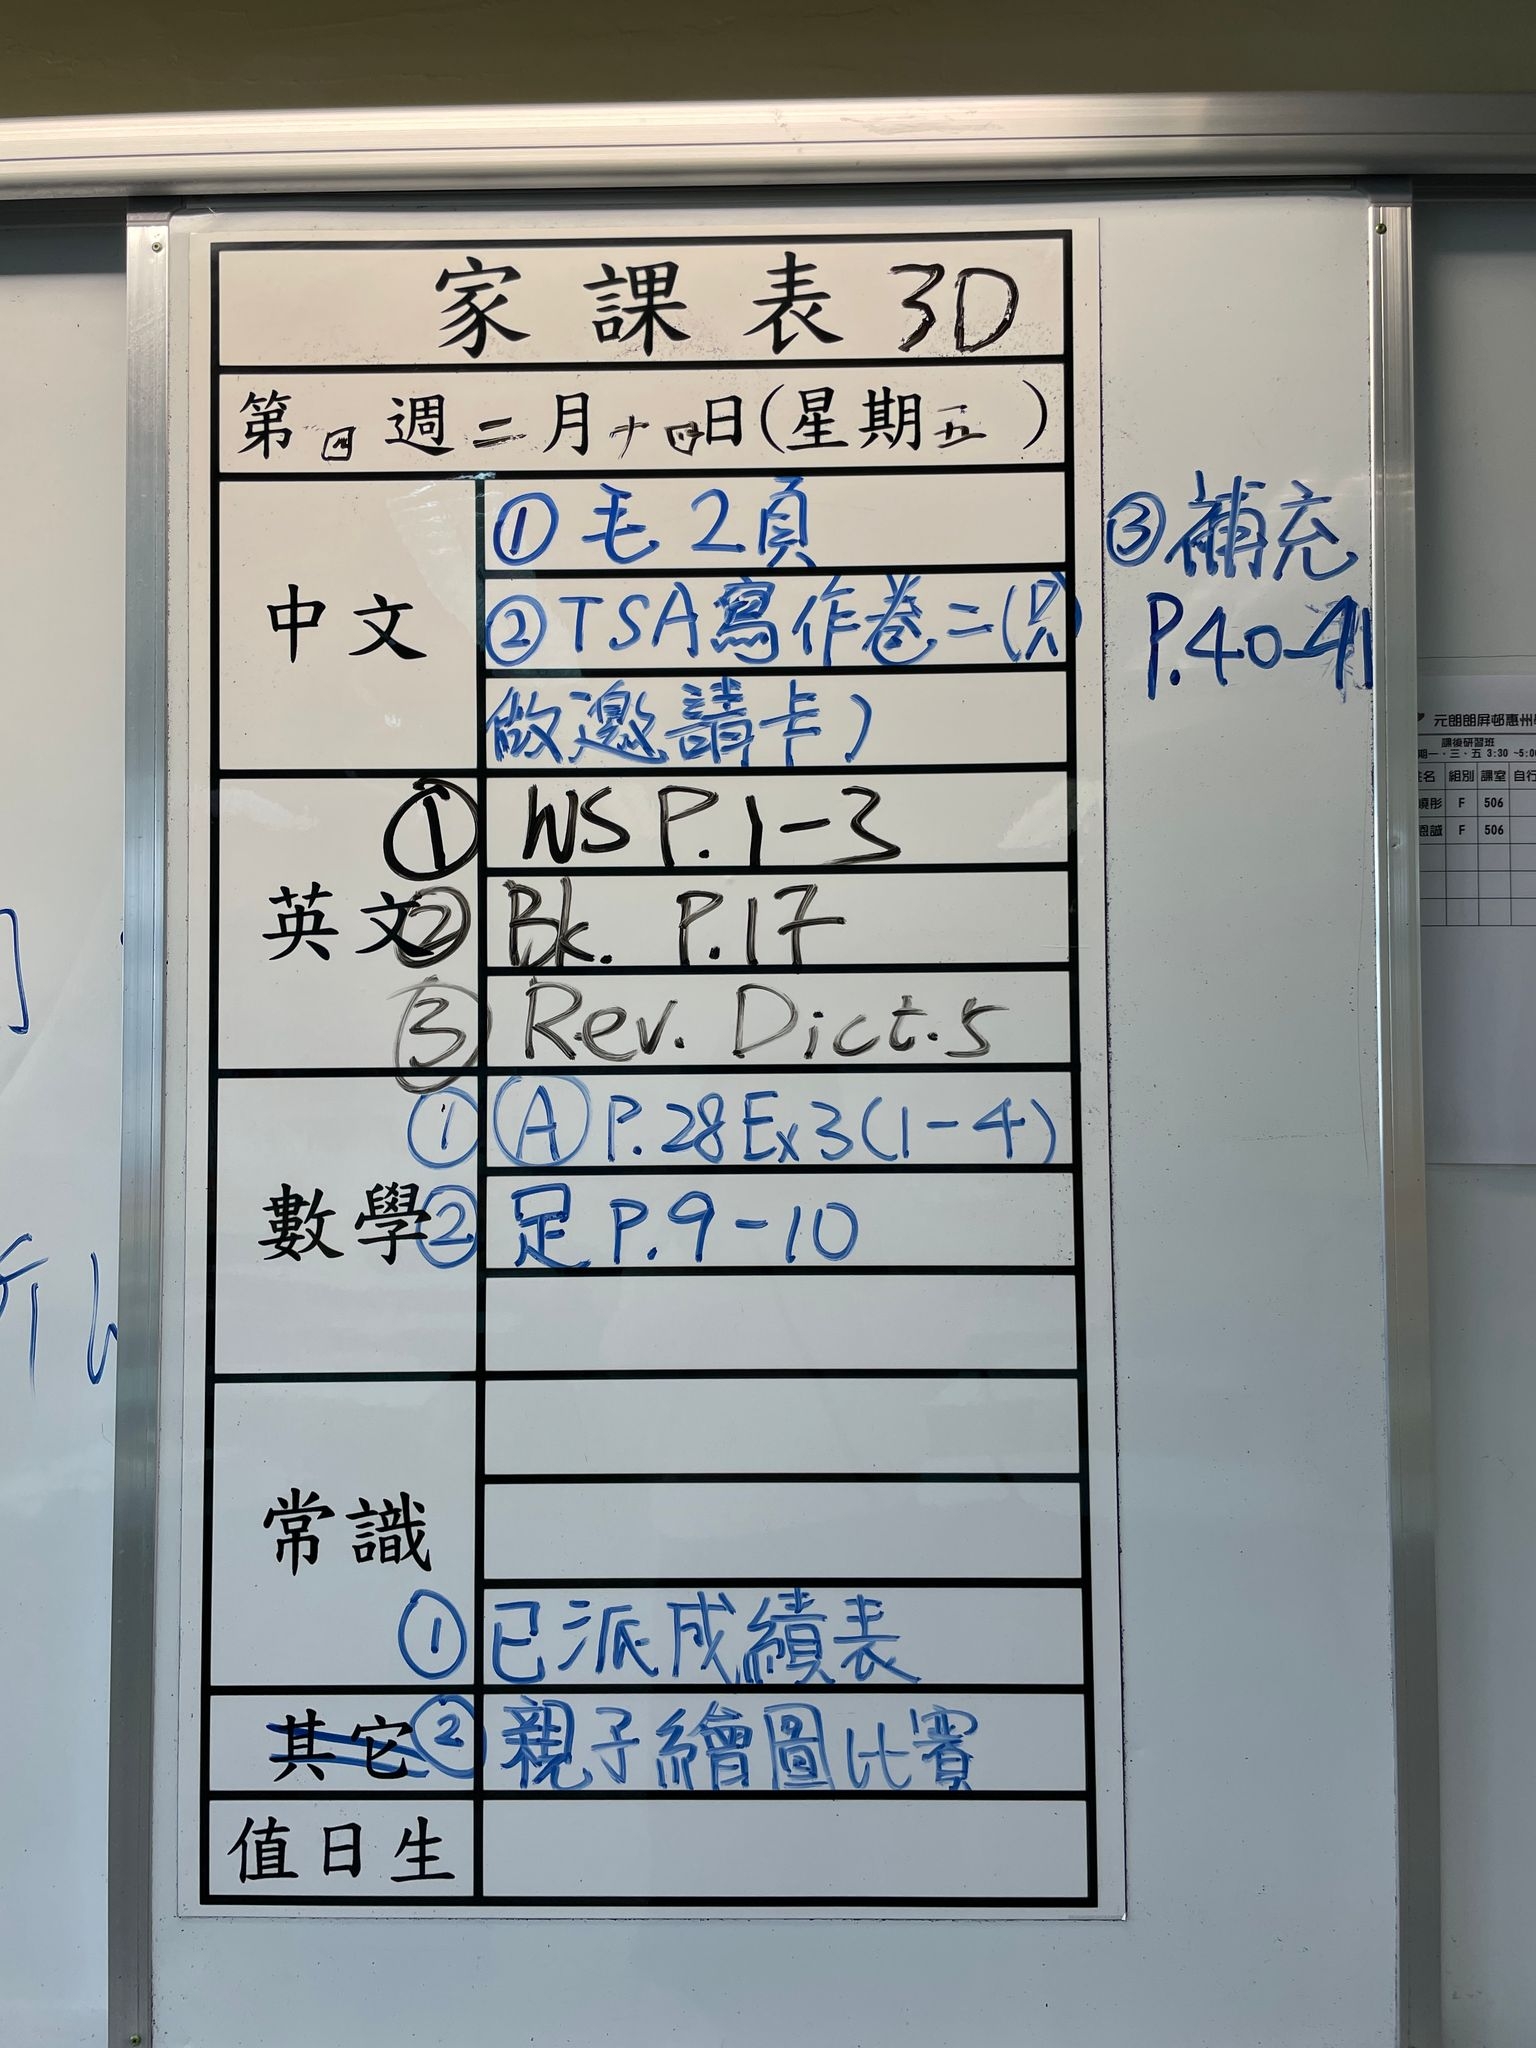 家課表 3D
第四週二月十四日(星期五)
中文
① 毛2頁
② TSA寫作卷二(只
做邀請卡)
③ 補充
P.40-41
英文
① WS P.1-3
② Bk. P.17
③ Rev. Dict.5
數學
① Ⓐ P.28 Ex3(1-4)
② 足 P.9-10
常識
① 已派成績表
其它
② 親子繪圖比賽
值日生
元朗朗屏邨惠州
課後研習班
期一、三、五 3:30 ~5:0
姓名 組別 課室 自行
曉彤 F 506
恩誠 F 506